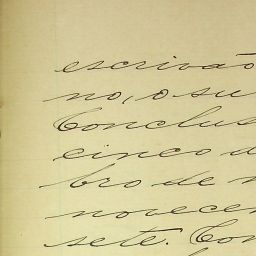 escrivão
no, o su
Conclus
cinco d
bro de n
novecen
sete. Con